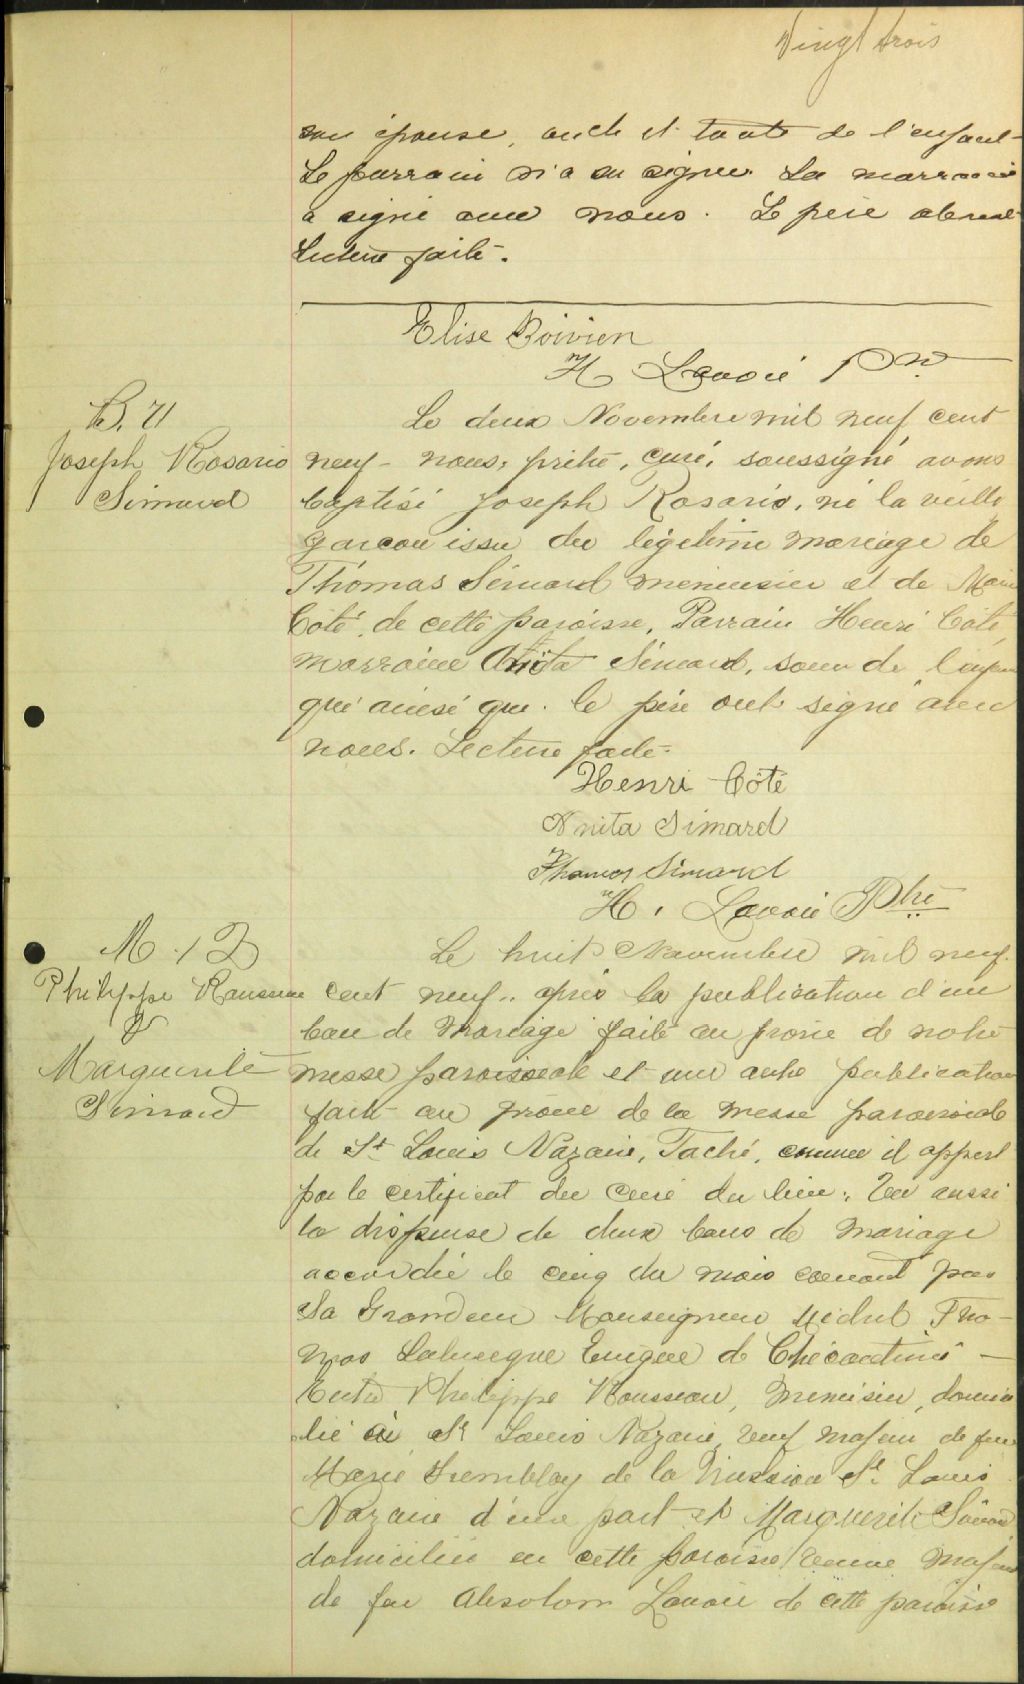 Vingt trois
son épouse, oncle et tante de l'enfant
Le parrain n'a su signer. La marraine
a signé avec nous. Le père absent
Lecture faite.
Elise Boivien
H Lavoie Ptre
B. 71
Joseph Rosario
Simard
Le deux Novembre mil neuf cent
neuf - nous, prêtre, curé, soussigné avons
baptisé Joseph Rosario, né la veille
garçon issu du légitime mariage de
Thomas Simard menuisier et de Marie
Côté, de cette paroisse, Parrain Henri Côté,
marraine Anita Simard, soeur de l'enfant
qui ainsi que le père ont signé avec
nous. Lecture faite.
Henri Côté
Anita Simard
Thomas Simard
H. Lavoie Ptre
M. 12
Philippe Rousseau
&
Marguerite
Simard
Le huit Novembre mil neuf
cent neuf, après la publication d'un
ban de mariage faite au prône de notre
messe paroissiale et une autre publication
faite au prône de la messe paroissiale
de St Louis Nazaire, Taché, comme il appert
par le certificat du curé du lieu; Vu aussi
la dispense de deux bans de mariage
accordée le cinq du mois courant par
Sa Grandeur Monseigneur Michel Tho-
mas Labrecque Evêque de Chicoutimi -
Entre Philippe Rousseau, menuisier, domici
lié à St Louis Nazaire, veuf majeur de feue
Marie Tremblay de la mission St Louis
Nazaire d'une part et Marguerite Simard
domiciliée en cette paroisse, veuve majeure
de feu Absolom Lavoie de cette paroisse